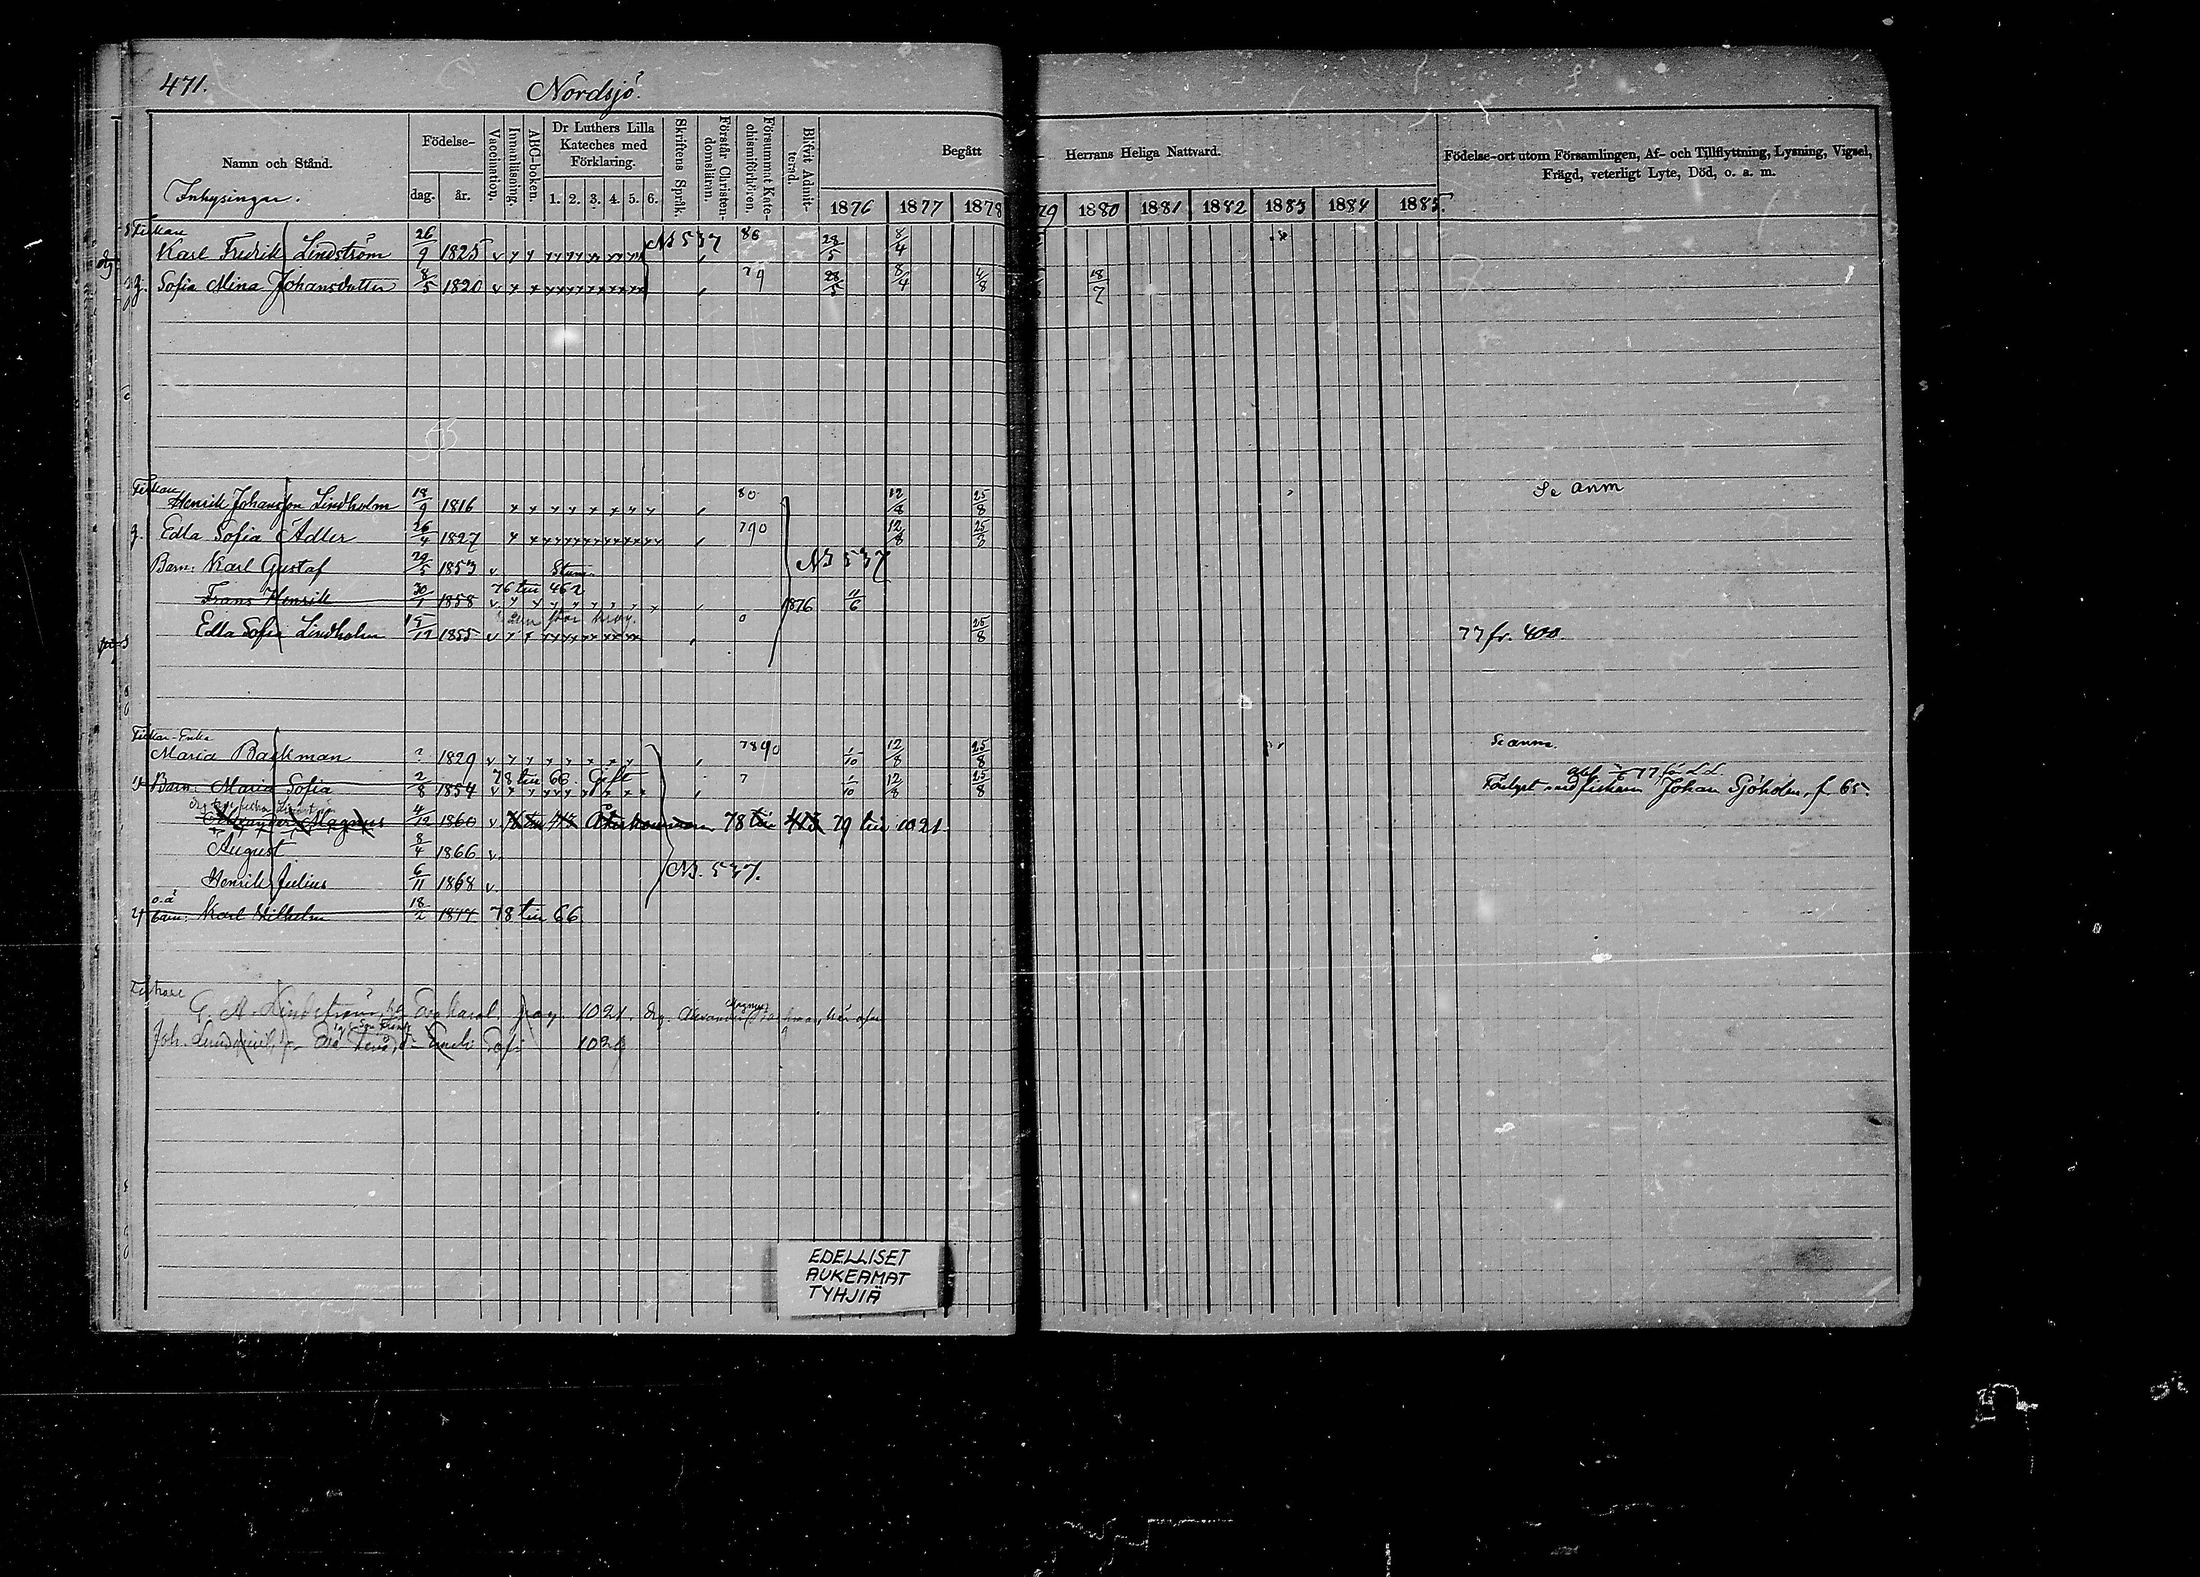 471.
Nordsjö.
Namn och Stånd.
Inhysingar.
Födelse-
dag.
år.
Vaccination.
Innanläsning.
ABC-boken.
Dr Luthers Lilla
Kateches med
Förklaring.
1. 2. 3. 4. 5. 6.
Skriftens Språk.
Förstår Christen-
domsläran.
Försummat Kate-
chismiförhören.
Blifvit Admit-
terad.
Begått
Herrans Heliga Nattvard.
1876 1877 1878 79 1880 1881 1882 1883 1884 1885.
Födelse-ort utom Församlingen, Af- och Tillflyttning, Lysning, Vigsel,
Frägd, veterligt Lyte, Död, o. a. m.
Fiskare
Karl Fredrik Lindström 26/9 1825 v N3 537 86 28/5 8/4
Sofia Mina Johansdotter 8/5 1820 v 79 28/5 8/4 4/8 18/7
Fiskare
Henrik Johansson Lindholm 18/9 1816 80 12/8 25/8 Se anm
Edla Sofia Adler 26/4 1827 790 12/8 25/8
Barn: Karl Gustaf 29/5 1853 v Stum. N3 537
Frans Henrik 30/1 1858 v 76 till 462 1876 11/6
Edla Sofia Lindholm 15/12 1855 v 0 25/8 77 fr. 400.
Fiskar-Enka
Maria Backman ? 1829 v 7890 1/10 12/8 25/8 Se anm.
Barn: Maria Sofia 2/8 1854 v 78 till 66. Gift 7 1/10 12/8 25/8 Förlyst med fiskaren Johan Sjöholm, f. 65.
Alexander Magnus 4/12 1860 v Återkommen. 78 till 413 79 till 1021.
August 8/4 1866 v
Henrik Julius 6/11 1868 v N3. 537.
o.ä
barn: Karl Wilhelm 18/2 1877 78 till 66
Fiskare
G. A. Lindström, pag. 1021. Alexander Magnus
Joh. 102
EDELLISET
AUKEAMAT
TYHJIÄ